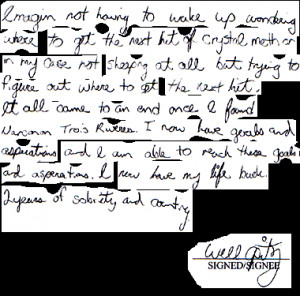 Imagin not having to wake up wondering
where to get the next hit of crystal meth or
in my case not sleeping at all but trying to
figure out where to get the next hit.
It all came to an end once I found
Narconon Trois Rivieres. I now have goals and
aspirations and I am able to reach these goals
and asperations. I now have my life back.
2 years of sobriety and counting
SIGNED/SIGNEE